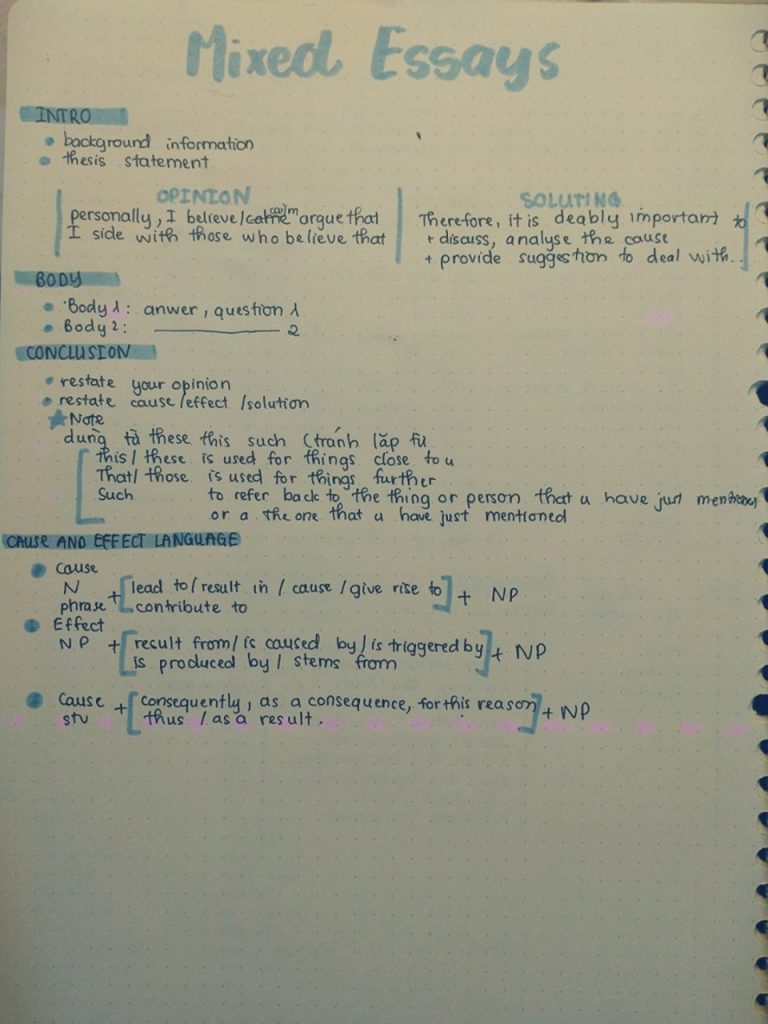 Mixed Essays
INTRO
background information
thesis statement
OPINION
personally, I believe/ caim argue that
I side with those who believe that
SOLUTING
Therefore, it is deably important to
+ discuss, analyse the cause
+ provide suggestion to deal with..
BODY
Body 1: anwer, question 1
Body 2: ――――― 2
CONCLUSION
restate your opinion
restate cause/effect/solution
Note
dùng từ these this such (tránh lặp từ
this/ these is used for things close to u
That/ those is used for things further
Such to refer back to the thing or person that u have just mention
or a the one that u have just mentioned
CAUSE AND EFFECT LANGUAGE
Cause
N phrase + [lead to/ result in / cause / give rise to
contribute to] + NP
Effect
NP + [result from/ is caused by/ is triggered by
is produced by/ stems from] + NP
Cause stv + [consequently, as a consequence, for this reason
thus / as a result.] + NP